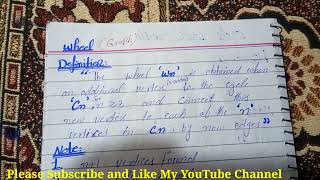 wheel (Graph)
Definition:
"The wheel 'Wn' is obtained when
an additional vertex to the cycle
'Cn' n≥3 and connect this
new vertex to each of the 'n'
vertices in Cn, by new edges"
Note:
1 n+1 vertices found
Please Subscribe and Like My YouTube Channel